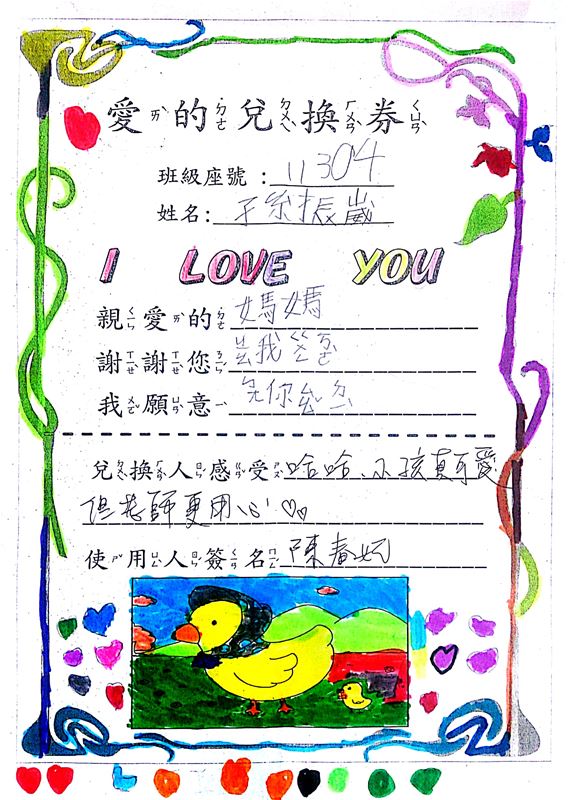 愛ㄞˋ的ㄉㄜ˙兌ㄉㄨㄟˋ換ㄏㄨㄢˋ券ㄑㄩㄢˋ
班級座號：11304
姓名：振崴
I LOVE YOU
親ㄑㄧㄣ愛ㄞˋ的ㄉㄜ˙媽媽
謝ㄒㄧㄝˋ謝ㄒㄧㄝ˙您ㄋㄧㄣˊ我
我ㄨㄛˇ願ㄩㄢˋ意ㄧˋ你
兌ㄉㄨㄟˋ換ㄏㄨㄢˋ人ㄖㄣˊ感ㄍㄢˇ受ㄕㄡˋ：哈哈、小孩真可愛
但老師更用心！♡♡
使ㄕˇ用ㄩㄥˋ人ㄖㄣˊ簽ㄑㄧㄢ名ㄇㄧㄥˊ：陳春